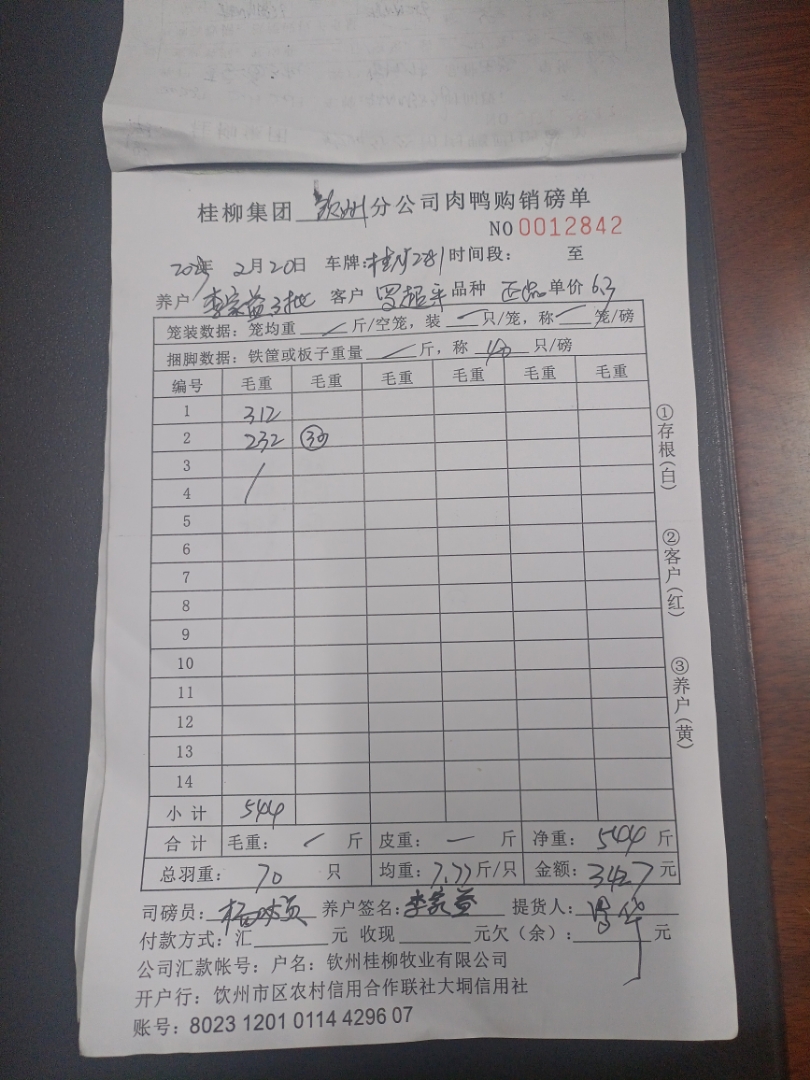 桂柳集团 钦州 分公司肉鸭购销磅单
NO 0012842
2月20日 车牌: 时间段: 至
养户 李家益3批 客户 罗超平 品种 正品 单价 6.3
笼装数据: 笼均重 / 斤/空笼, 装 — 只/笼, 称 — 笼/磅
捆脚数据: 铁筐或板子重量 / 斤, 称 40 只/磅
编号 毛重 毛重 毛重 毛重 毛重 毛重
1 312
2 232 ㉚
3 /
4
5
6
7
8
9
10
11
12
13
14
小计 544
合计 毛重: / 斤 皮重: — 斤 净重: 544 斤
总羽重: 70 只 均重: 7.77 斤/只 金额: 3427 元
司磅员: 养户签名: 李家益 提货人:
付款方式: 汇 元 收现 元欠(余): 元
公司汇款帐号: 户名: 钦州桂柳牧业有限公司
开户行: 饮州市区农村信用合作联社大垌信用社
账号: 8023 1201 0114 4296 07
①存根(白)
②客户(红)
③养户(黄)